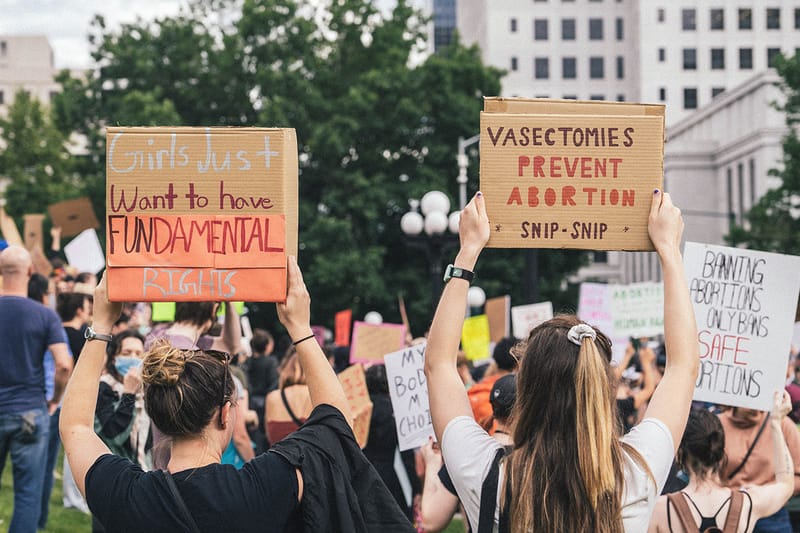 Girls Just
Want to have
FUNDAMENTAL
RIGHTS
VASECTOMIES
PREVENT
ABORTION
* SNIP-SNIP *
BANNING
ABORTIONS
ONLY BANS
SAFE
ABORTIONS
MY
BODY
MY
CHOI